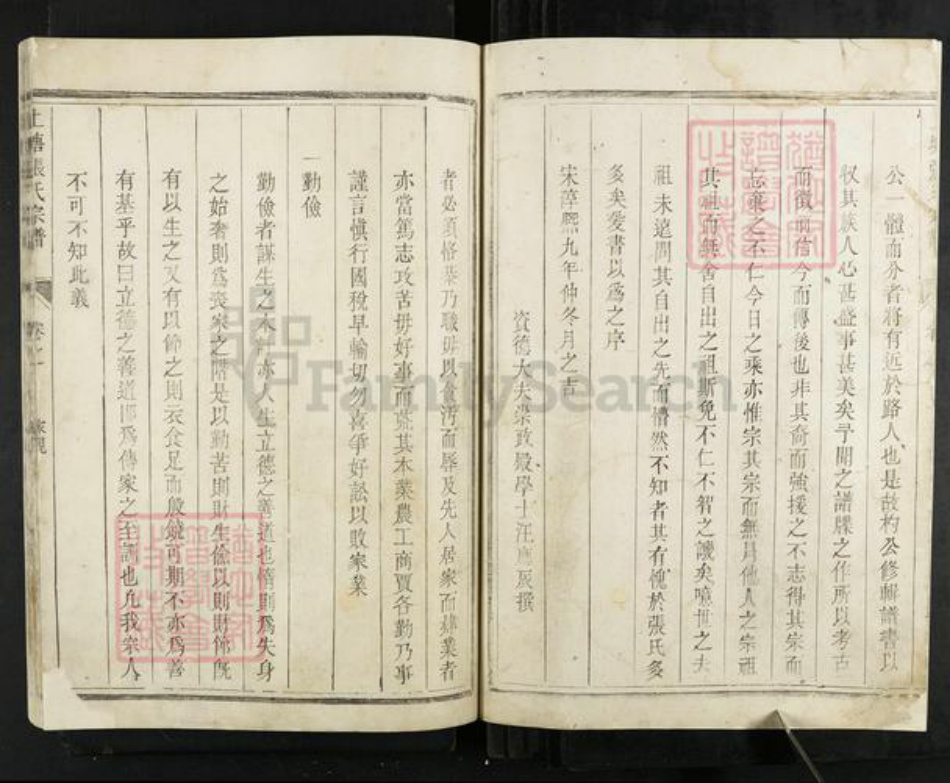 公一體而分者將有近於路人也是故杓公修輯譜書以
収其族人心甚盛事甚美矣予聞之譜牒之作所以考古
而徵前信今而傳後也非其裔而強援之不志得其宗而
忘棄之不仁今日之乘亦惟宗其宗而無昌他人之宗祖
其祖而無舍自出之祖斯免不仁不智之譏矣噫世之去
祖未遠問其自出之先而懵然不知者其有愧於張氏多
多矣爰書以爲之序
宋淳熙九年仲冬月之吉
資德大夫叅政殿學士汪應辰撰
者必須恪恭乃職毋以貪污而辱及先人居家而肄業者
亦當篤志攻苦毋好事而荒其本業農工商賈各勤乃事
謹言慎行國稅早輸切勿喜爭好訟以敗家業
一勤儉
勤儉者謀生之本亦人生立德之善道也惰則爲失身
之始奢則爲喪家之階是以勤苦則財生儉以則財節旣
有以生之又有以節之則衣食足而殷饒可期不亦爲善
有基乎故曰立德之善道卽爲傳家之至訓也凡我宗人
不可不知此義
上塘張氏宗譜
卷之一
家規
FamilySearch